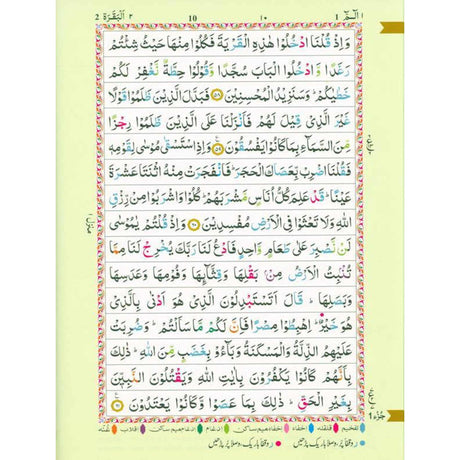 الٓمّٓ ١ 1 ١٠ 10 اَلْبَقَرَة ٢ 2
وَاِذْ قُلْنَا ادْخُلُوْا هٰذِهِ الْقَرْيَةَ فَكُلُوْا مِنْهَا حَيْثُ شِئْتُمْ
رَغَدًا وَّادْخُلُوا الْبَابَ سُجَّدًا وَّقُوْلُوْا حِطَّةٌ نَّغْفِرْ لَكُمْ
خَطٰيٰكُمْ ؕ وَسَنَزِيْدُ الْمُحْسِنِيْنَ ۝۵۸ فَبَدَّلَ الَّذِيْنَ ظَلَمُوْا قَوْلًا
غَيْرَ الَّذِيْ قِيْلَ لَهُمْ فَاَنْزَلْنَا عَلَى الَّذِيْنَ ظَلَمُوْا رِجْزًا
مِّنَ السَّمَآءِ بِمَا كَانُوْا يَفْسُقُوْنَ ۝۵۹ وَاِذِ اسْتَسْقٰى مُوْسٰى لِقَوْمِهٖ
فَقُلْنَا اضْرِبْ بِّعَصَاكَ الْحَجَرَ ؕ فَانْفَجَرَتْ مِنْهُ اثْنَتَا عَشْرَةَ
عَيْنًا ؕ قَدْ عَلِمَ كُلُّ اُنَاسٍ مَّشْرَبَهُمْ ؕ كُلُوْا وَاشْرَبُوْا مِنْ رِّزْقِ
اللّٰهِ وَلَا تَعْثَوْا فِى الْاَرْضِ مُفْسِدِيْنَ ۝۶۰ وَاِذْ قُلْتُمْ يٰمُوْسٰى
لَنْ نَّصْبِرَ عَلٰى طَعَامٍ وَّاحِدٍ فَادْعُ لَنَا رَبَّكَ يُخْرِجْ لَنَا مِمَّا
تُنْۢبِتُ الْاَرْضُ مِنْۢ بَقْلِهَا وَقِثَّآئِهَا وَفُوْمِهَا وَعَدَسِهَا
وَبَصَلِهَا ؕ قَالَ اَتَسْتَبْدِلُوْنَ الَّذِيْ هُوَ اَدْنٰى بِالَّذِيْ
هُوَ خَيْرٌ ؕ اِهْبِطُوْا مِصْرًا فَاِنَّ لَكُمْ مَّا سَاَلْتُمْ ؕ وَضُرِبَتْ
عَلَيْهِمُ الذِّلَّةُ وَالْمَسْكَنَةُ وَبَآءُوْ بِغَضَبٍ مِّنَ اللّٰهِ ؕ ذٰلِكَ
بِاَنَّهُمْ كَانُوْا يَكْفُرُوْنَ بِاٰيٰتِ اللّٰهِ وَيَقْتُلُوْنَ النَّبِيّٖنَ
بِغَيْرِ الْحَقِّ ؕ ذٰلِكَ بِمَا عَصَوْا وَّكَانُوْا يَعْتَدُوْنَ ۝۶۱
منزل ١
جُزْء 1
تفخیم قلقلہ اخفاء اخفاء میم ساکن ادغام ادغام میم ساکن اقلاب غنّہ